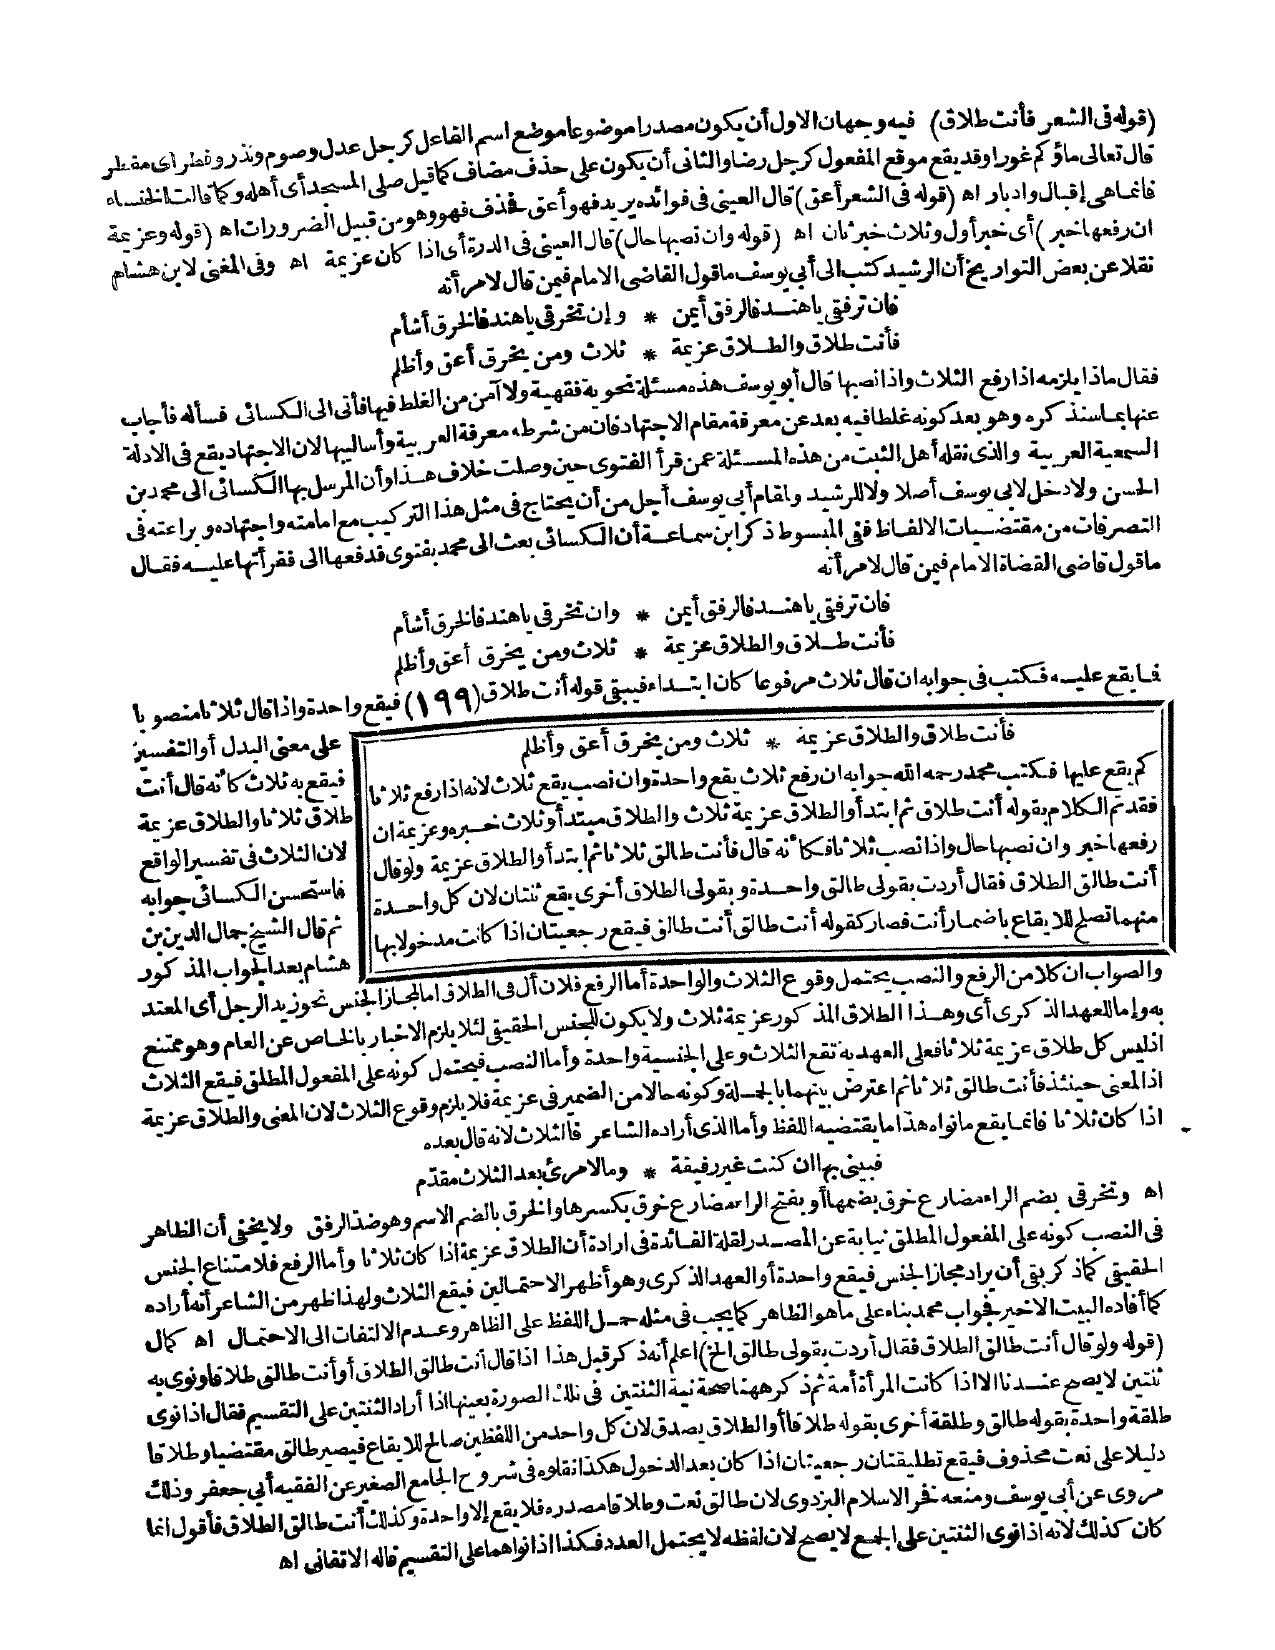 (قوله فى الشعر فأنت طلاق) فيه وجهان الاول أن يكون مصدرا موضوعا موضع اسم الفاعل كرجل عدل وصوم ونذر وفطر أى مفطر
قال تعالى ماؤكم غورا وقد يقع موقع المفعول كرجل رضا والثانى أن يكون على حذف مضاف كما قيل صلى المسجد أى أهله وكما قالت الخنساء
فانما هى إقبال وادبار اه (قوله فى الشعر أعق) قال العينى فى فوائده يريد فهو أعق فحذف فهو وهو من قبيل الضرورات اه (قوله وعزيمة
ان رفعها خبر) أى خبر أول وثلاث خبر ثان اه (قوله وان نصبها حال) قال العينى فى الدرة أى اذا كان عزيمة اه وفى المغنى لابن هشام
نقلا عن بعض التواريخ أن الرشيد كتب الى أبى يوسف ما قول القاضى الامام فيمن قال لامرأته
فان ترفقى يا هند فالرفق أيمن * وإن تخرقى يا هند فالخرق أشأم
فأنت طلاق والطلاق عزيمة * ثلاث ومن يخرق أعق وأظلم
فقال ماذا يلزمه اذا رفع الثلاث واذا نصبها قال أبو يوسف هذه مسئلة نحوية فقهية ولا آمن من الغلط فيها فأتى الى الكسائى فسأله فأجاب
عنها بما سنذكره وهو بعد كونه غلطا فيه بعد عن معرفة مقام الاجتهاد فان من شرطه معرفة العربية وأساليبها لان الاجتهاد يقع فى الادلة
السمعية العربية والذى نقله أهل الثبت من هذه المسئلة عمن قرأ الفتوى حين وصلت خلاف هذا وأن المرسل بها الكسائى الى محمد بن
الحسن ولا دخل لابى يوسف أصلا ولا للرشيد ولمقام أبى يوسف أجل من أن يحتاج فى مثل هذا التركيب مع امامته واجتهاده وبراعته فى
التصرفات من مقتضيات الالفاظ ففى المبسوط ذكر ابن سماعة أن الكسائى بعث الى محمد بفتوى فدفعها الى فقرأتها عليه فقال
ما قول قاضى القضاة الامام فيمن قال لامرأته
فان ترفقى يا هند فالرفق أيمن * وان تخرقى يا هند فالخرق أشأم
فأنت طلاق والطلاق عزيمة * ثلاث ومن يخرق أعق وأظلم
فما يقع عليه فكتب فى جوابه ان قال ثلاث مرفوعا كان ابتداء فيبقى قوله أنت طلاق (١٩٩) فيقع واحدة واذا قال ثلاثا منصوبا
على معنى البدل أو التفسير
فيقع به ثلاث كأنه قال أنت
طلاق ثلاثا والطلاق عزيمة
لان الثلاث فى تفسير الواقع
فاستحسن الكسائى جوابه
ثم قال الشيخ جمال الدين بن
هشام بعد الجواب المذكور
فأنت طلاق والطلاق عزيمة * ثلاث ومن يخرق أعق وأظلم
كم يقع عليها فكتب محمد رحمه الله جوابه ان رفع ثلاث يقع واحدة وان نصب يقع ثلاث لانه اذا رفع ثلاثا
فقد تم الكلام بقوله أنت طلاق ثم ابتدأ والطلاق عزيمة ثلاث والطلاق مبتدأ وثلاث خبره وعزيمة ان
رفعها خبر وان نصبها حال واذا نصب ثلاثا فكأنه قال فأنت طالق ثلاثا ثم ابتدأ والطلاق عزيمة ولو قال
أنت طالق الطلاق فقال أردت بقولى طالق واحدة وبقولى الطلاق أخرى يقع ثنتان لان كل واحدة
منهما تصلح للايقاع باضمار أنت فصار كقوله أنت طالق أنت طالق فيقع رجعيتان اذا كانت مدخولا بها
والصواب ان كلا من الرفع والنصب يحتمل وقوع الثلاث والواحدة أما الرفع فلان أل فى الطلاق اما لمجاز الجنس نحو زيد الرجل أى المعتد
به وإما للعهد الذكرى أى وهذا الطلاق المذكور عزيمة ثلاث ولا يكون للجنس الحقيقى لئلا يلزم الاخبار بالخاص عن العام وهو ممتنع
اذ ليس كل طلاق عزيمة ثلاثا فعلى العهدية تقع الثلاث وعلى الجنسية واحدة وأما النصب فيحتمل كونه على المفعول المطلق فيقع الثلاث
اذ المعنى حينئذ فأنت طالق ثلاثا ثم اعترض بينهما بالجملة وكونه حالا من الضمير فى عزيمة فلا يلزم وقوع الثلاث لان المعنى والطلاق عزيمة
اذا كان ثلاثا فانما يقع ما نواه هذا ما يقتضيه اللفظ وأما الذى أراده الشاعر فالثلاث لانه قال بعده
فبينى بها ان كنت غير رفيقة * وما لامرئ بعد الثلاث مقدّم
اه وتخرقى بضم الراء مضارع خرق بضمها أو بفتح الراء مضارع خرق بكسرها والخرق بالضم الاسم وهو ضد الرفق ولا يخفى أن الظاهر
فى النصب كونه على المفعول المطلق نيابة عن المصدر لقلة الفائدة فى ارادة أن الطلاق عزيمة اذا كان ثلاثا وأما الرفع فلامتناع الجنس
الحقيقى كما ذكر بقى أن يراد مجاز الجنس فيقع واحدة أو العهد الذكرى وهو أظهر الاحتمالين فيقع الثلاث ولهذا ظهر من الشاعر أنه أراده
كما أفاده البيت الاخير فجواب محمد بناء على ما هو الظاهر كما يجب فى مثله حمل اللفظ على الظاهر وعدم الالتفات الى الاحتمال اه كمال
(قوله ولو قال أنت طالق الطلاق فقال أردت بقولى طالق الخ) اعلم أنه ذكر قبل هذا اذا قال أنت طالق الطلاق أو أنت طالق طلاقا ونوى به
ثنتين لا يصح عندنا الا اذا كانت المرأة أمة ثم ذكر ههنا صحة نية الثنتين فى تلك الصورة بعينها اذا أراد الثنتين على التقسيم فقال اذا نوى
طلقة واحدة بقوله طالق وطلقة أخرى بقوله طلاقا أو الطلاق يصدق لان كل واحد من اللفظين صالح للايقاع فيصير طالق مقتضيا وطلاقا
دليلا على نعت محذوف فيقع تطليقتان رجعيتان اذا كان بعد الدخول هكذا نقلوه فى شروح الجامع الصغير عن الفقيه أبى جعفر وذلك
مروى عن أبى يوسف ومنعه فخر الاسلام البزدوى لان طالق نعت وطلاقا مصدره فلا يقع إلا واحدة وكذلك أنت طالق الطلاق فأقول انما
كان كذلك لانه اذا نوى الثنتين على الجمع لا يصح لان لفظه لا يحتمل العدد فكذا اذا نواهما على التقسيم قاله الاتقانى اه